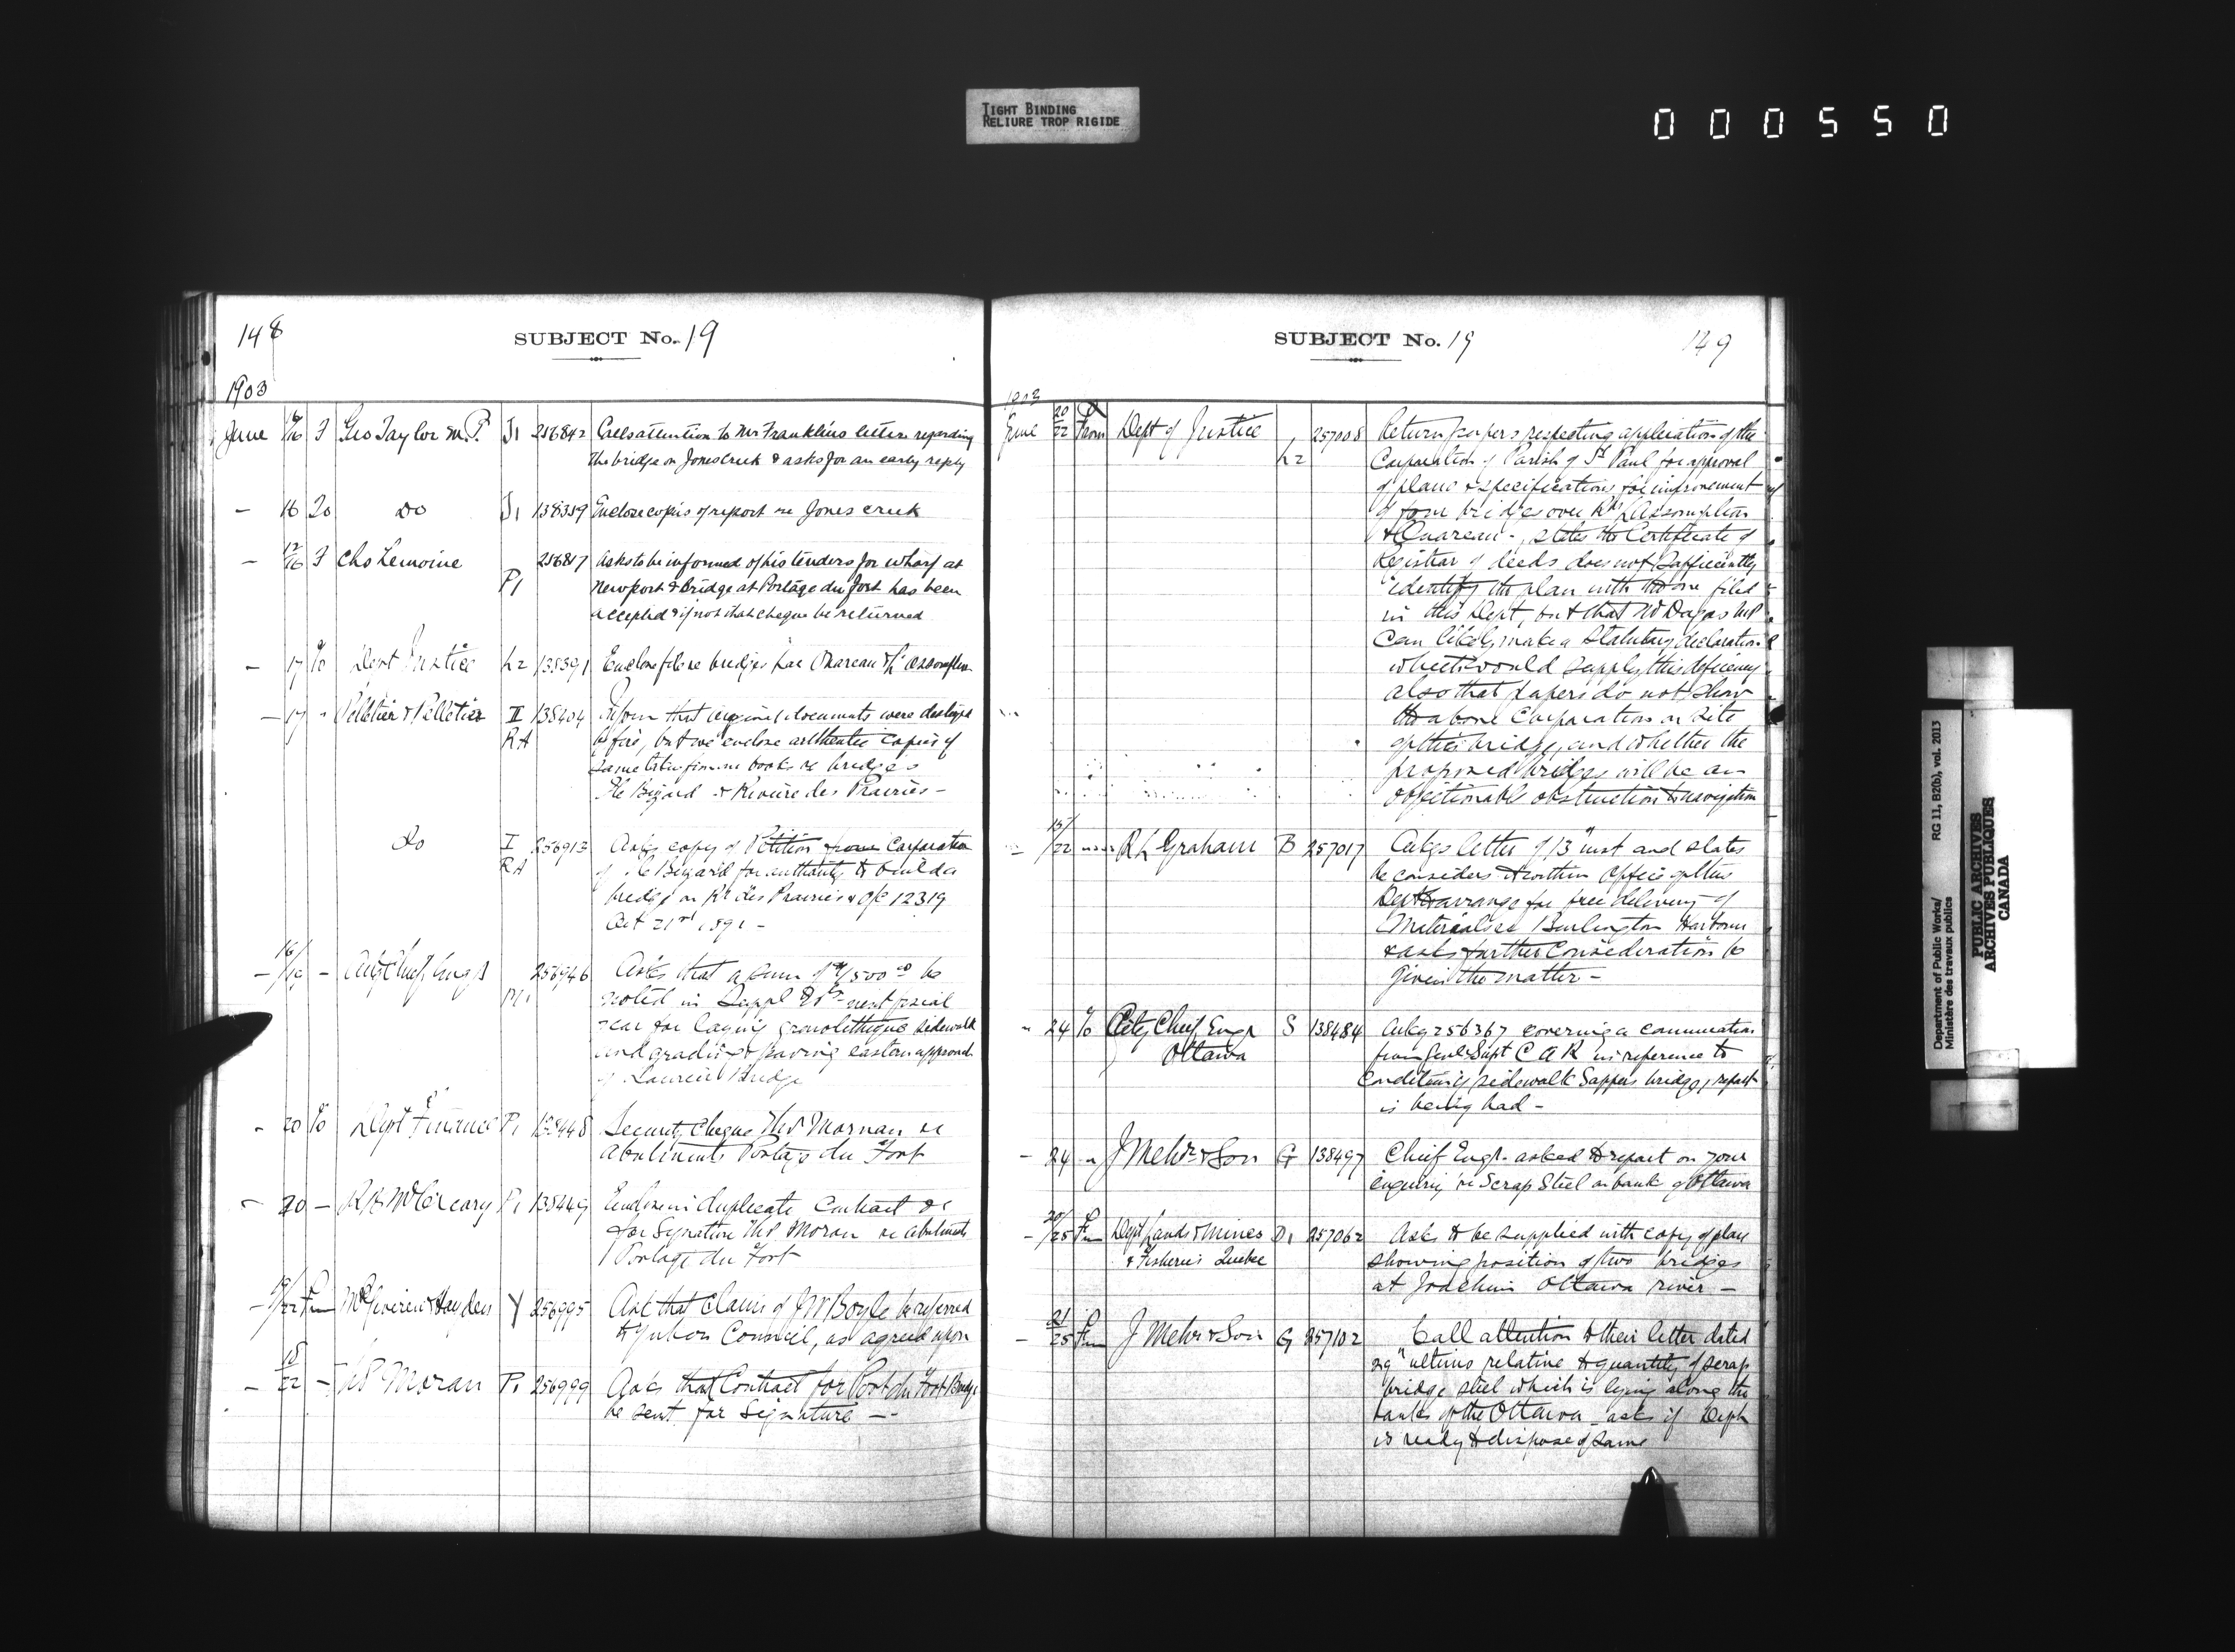 TIGHT BINDING
RELIURE TROP RIGIDE
000550
148
SUBJECT No. 19
1903
June 16/16 F Geo Taylor M.P. J1 256842 Calls attention to Mr Franklins letter regarding
the bridge on Jones Creek & asks for an early reply
— 16 20 Do J1 138359 Enclose copies of report re Jones creek
— 12/16 F Chs Lemoine P1 256817 Asks to be informed of his tenders for wharf at
Newport & Bridge at Portage du Fort has been
accepted & if not that cheque be returned
— 17 To Dept Justice L2 138391 Enclose file re bridges
— 17 " Pelletier & Pelletier II RA 138404 Inform that original documents were destroyed
by fire, but we enclose authentic copies of
same taken from our books re bridges
Ile Bizard & Riviere des Prairies —
Do I RA 256913 Asks copy of Petition from Corporation
of Ile Bizard for authority to build a
bridge on Rr des Prairies & O/C 12319
Oct 21st 1891 —
— 16/19 — Chief Engr 256946 Asks that a sum of be
voted in Suppl next fiscal
year for laying granolithique sidewalk
and grading & paving eastern approach
of Laurier Bridge
" 20 To Dept Finance P1 138448 Security Cheque Moran re
abutments Portage du Fort
— 20 — McCreary P1 138449 Enclose in duplicate Contract
for Signature Moran re abutments
Portage du Fort
— 19/22 From McGiverin & Hayden Y 256995 Ask that claim of J W Boyle be referred
to Yukon Council, as agreed upon
— 18/22 — Moran P1 256999 Asks that Contract for Port du Fort Bridge
be sent for Signature —
SUBJECT No. 19
149
1903
June 20/22 From Dept of Justice L2 257008 Return papers respecting application of the
Corporation of Parish of St Paul for approval
of plans & specifications for improvement
of four bridges over L'Assomption
& Ouareau -, states the Certificate of
Registrar of deeds does not sufficiently
identify the plan with the one filed
in this Dept, but that Mr Dugas MP
can likely make a Statutory declaration
which would supply this deficiency
also that papers do not show
the above Corporation on site
of the bridge, and whether the
proposed bridges will be an
objectionable obstruction to navigation
— 15/22 R L Graham B 257017 Ackgs letter of 13" inst and states
he considers it within Office of this
Dept to arrange for free delivery of
Materials re Burlington Harbour
& asks further Consideration be
given the matter —
" 24 To City Chief Engr S 138484 Ackg 256367 covering a communication
Ottawa from Genl Supt C A R in reference to
condition of sidewalk Sappers bridge, report
is being had —
— 24 " J Mehr & Son G 138497 Chief Engr. asked to report on your
enquiry re Scrap Steel on bank of Ottawa
— 20/25 From Dept Lands & Mines D1 257062 Asks to be supplied with copy of plan
& Fisheries Quebec showing position of two bridges
at Joachim Ottawa river —
— 21/25 From J Mehr & Son G 257102 Call attention to their letter dated
29" ultimo relative to quantity of scrap
bridge steel which is lying along the
banks of the Ottawa — asks if Dept
is ready to dispose of same
Department of Public Works/
Ministère des travaux publics
RG 11, B2(b), vol. 2013
PUBLIC ARCHIVES
ARCHIVES PUBLIQUES
CANADA